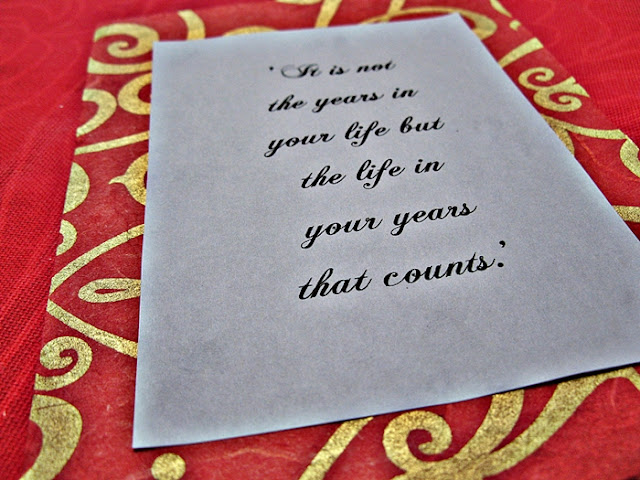 'It is not
the years in
your life but
the life in
your years
that counts.'